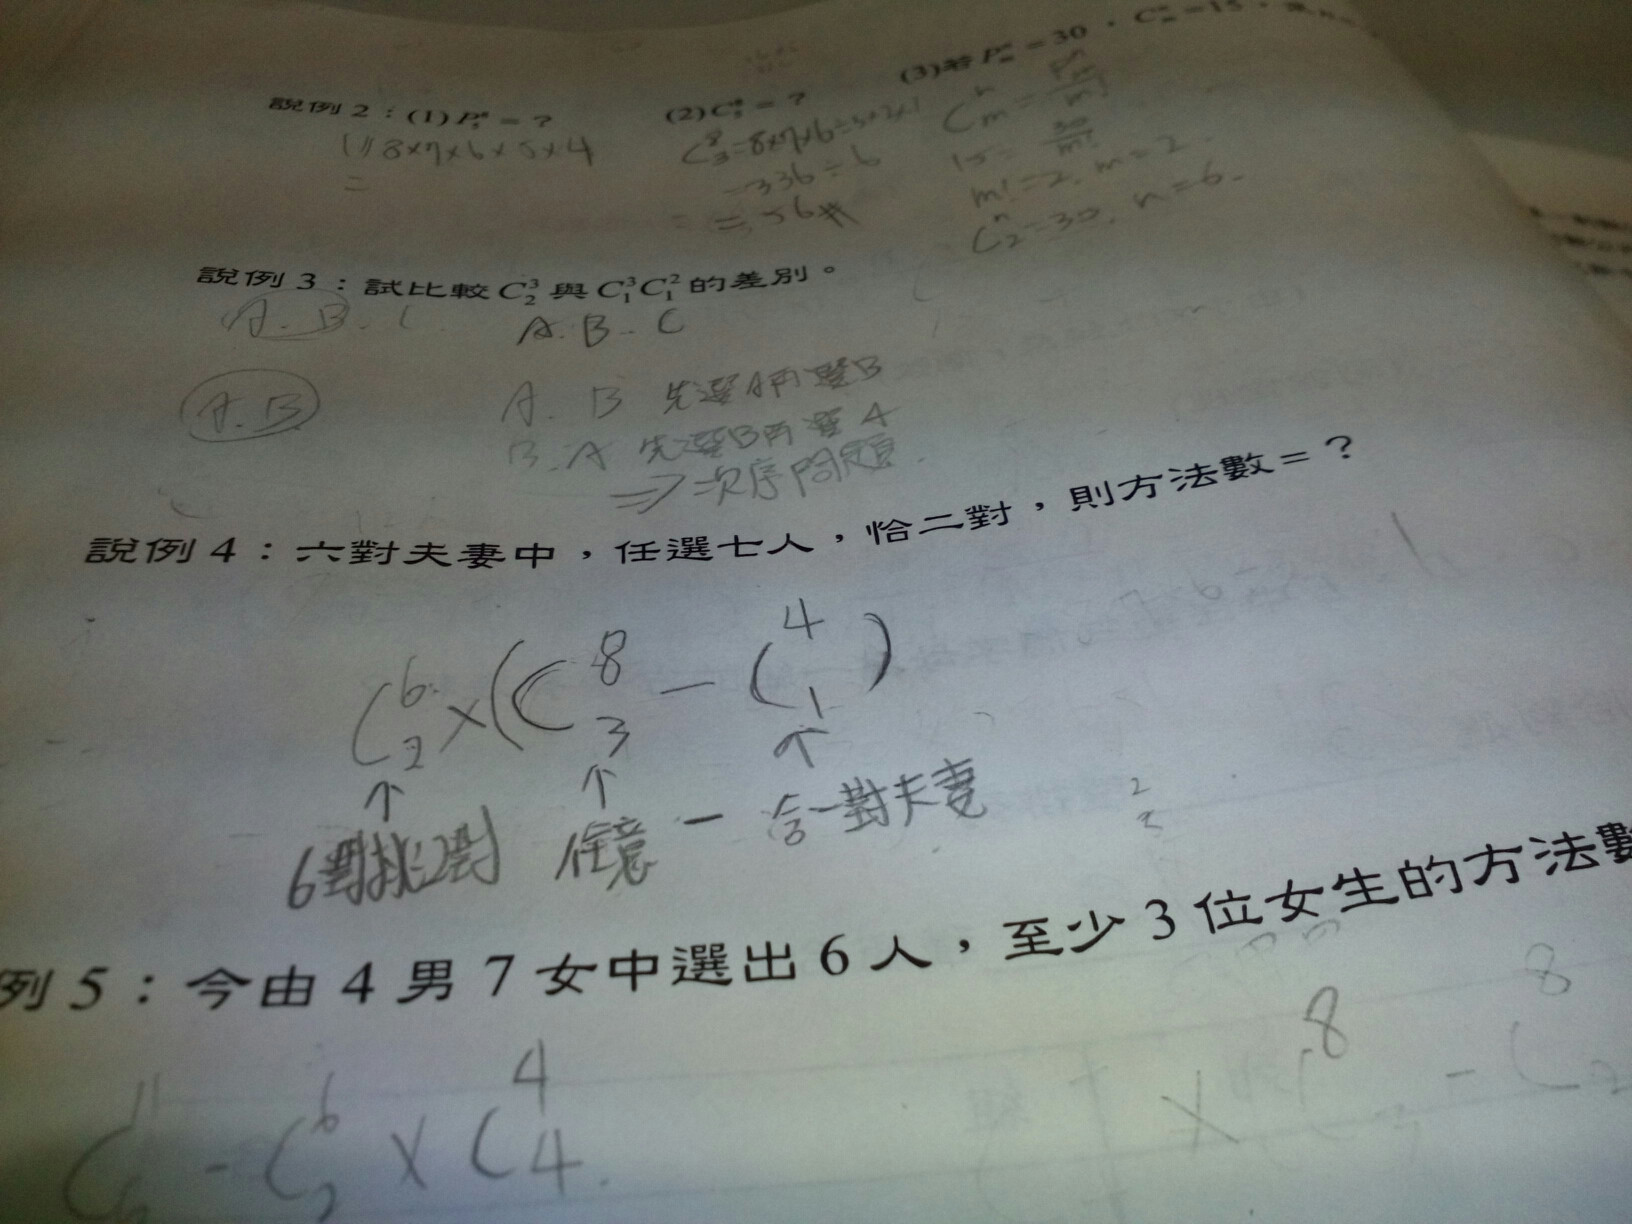 說例 2：(1) P = ？ (2) C = ？ (3)若 P = 30，C = 15，
1) 8×7×6×5×4
=
C⁸₃=8×7×6÷3×2×1
=336÷6
=56#
Cⁿₘ = Pⁿₘ/m!
15 = 30/m!
m!=2, m=2.
Cⁿ₂=30, n=6.
說例 3：試比較 C³₂ 與 C³₁C²₁ 的差別。
A. B. C
A. B. C
A.B
A. B 先選A再選B
B. A 先選B再選A
⇒次序問題.
說例 4：六對夫妻中，任選七人，恰二對，則方法數 = ？
C⁶₂×(C⁸₃ − C⁴₁)
↑ ↑ ↑
6對挑2對 任意 − 含一對夫妻
例 5：今由 4 男 7 女中選出 6 人，至少 3 位女生的方法數
C¹¹₆ - C⁶₂ × C⁴₄.
× C⁸₃ - C⁸₂